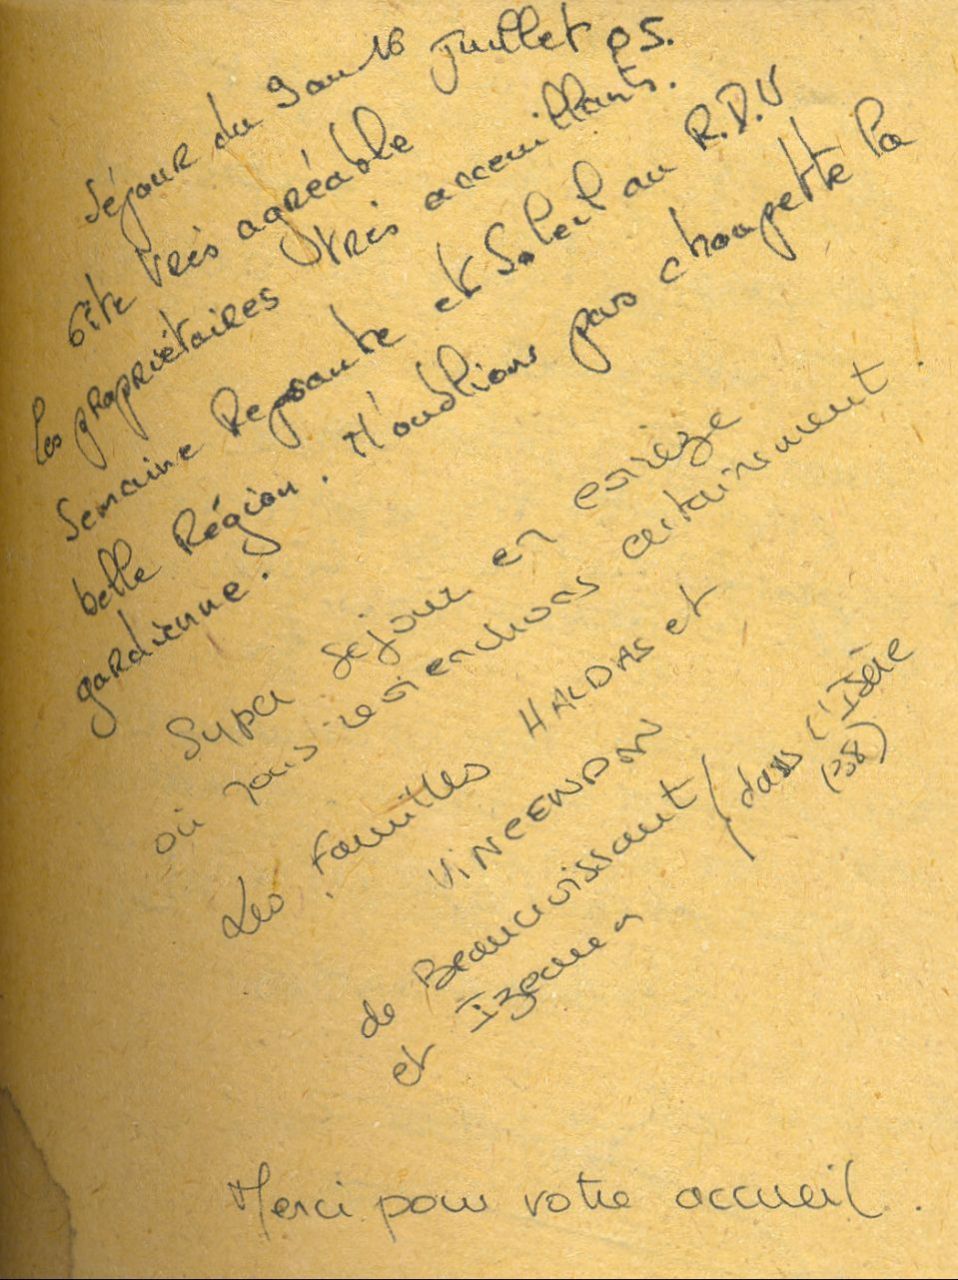 Séjour du 9 au 16 juillet 05.
Gîte très agréable
les propriétaires très acceuillants.
Semaine Reposante et Soleil au R.D.V
belle Région. N'oublions pas choupette la
gardienne.
Super séjour en corrèze
où nous reviendrons certainement.
Les familles HALDAS et
VINCENDON
de Beaucroissant / dans l'Isère
(38)
et Izeaux
Merci pour votre accueil.